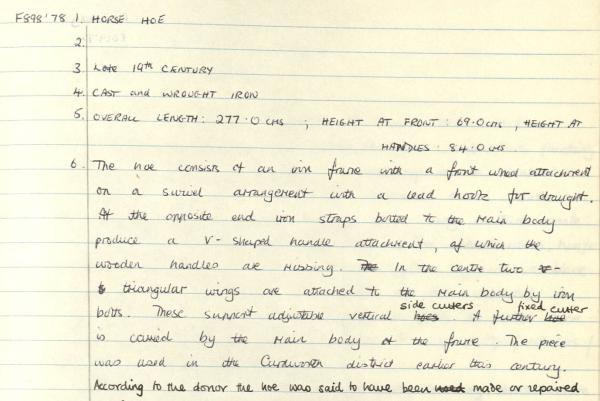 F898'78 1. HORSE HOE
2.
3. Late 19th CENTURY
4. CAST and WROUGHT IRON
5. OVERALL LENGTH: 277.0 cms ; HEIGHT AT FRONT: 69.0 cms, HEIGHT AT
HANDLES: 84.0 cms
6. The hoe consists of an iron frame with a front wheel attachment
on a swivel arrangement with a lead hook for draught.
At the opposite end iron straps bolted to the main body
produce a V-shaped handle attachment, of which the
wooden handles are missing. The In the centre two v-
triangular wings are attached to the main body by iron
side cutters fixed cutter
bolts. These support adjustable vertical hoes. A further hoe
is carried by the main body of the frame. The piece
was used in the Curdworth district earlier this century.
According to the donor the hoe was said to have been used made or repaired